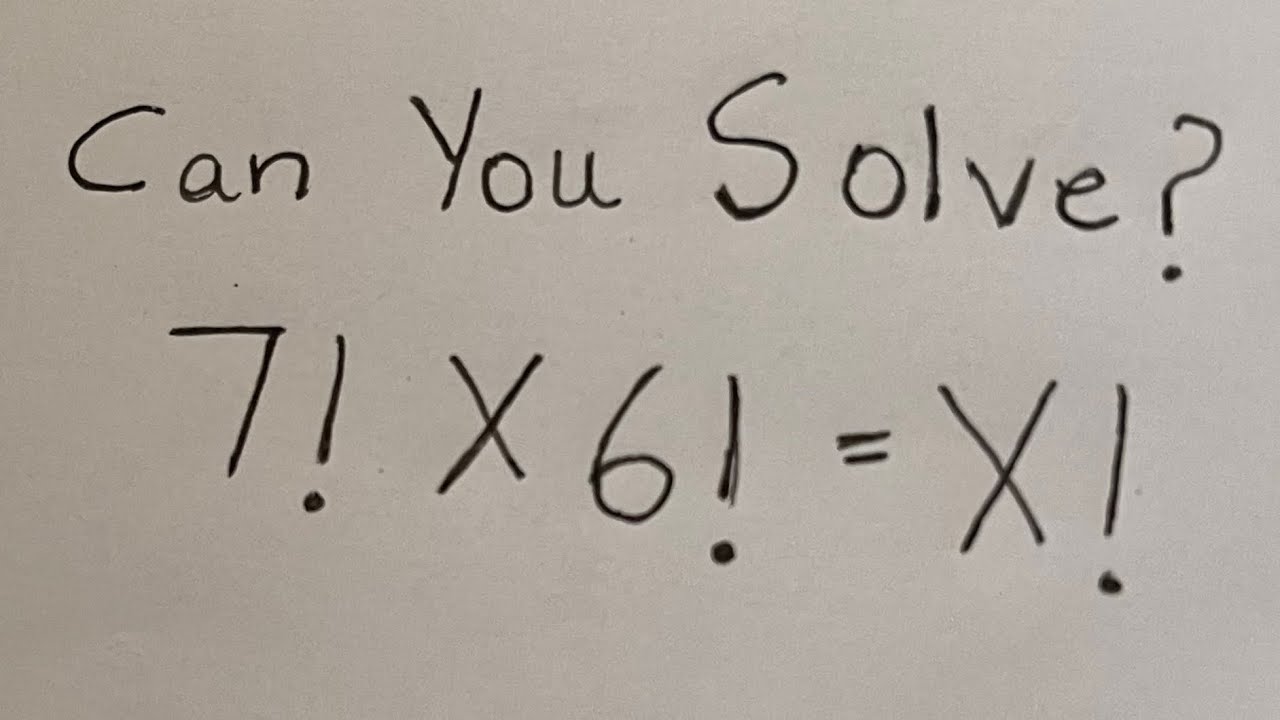 Can You Solve?
7! X 6! = X!